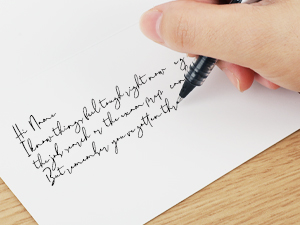 Hi Mama
I know things feel tough right now eg
the job search or the exam prep can
But remember you've gotten thro